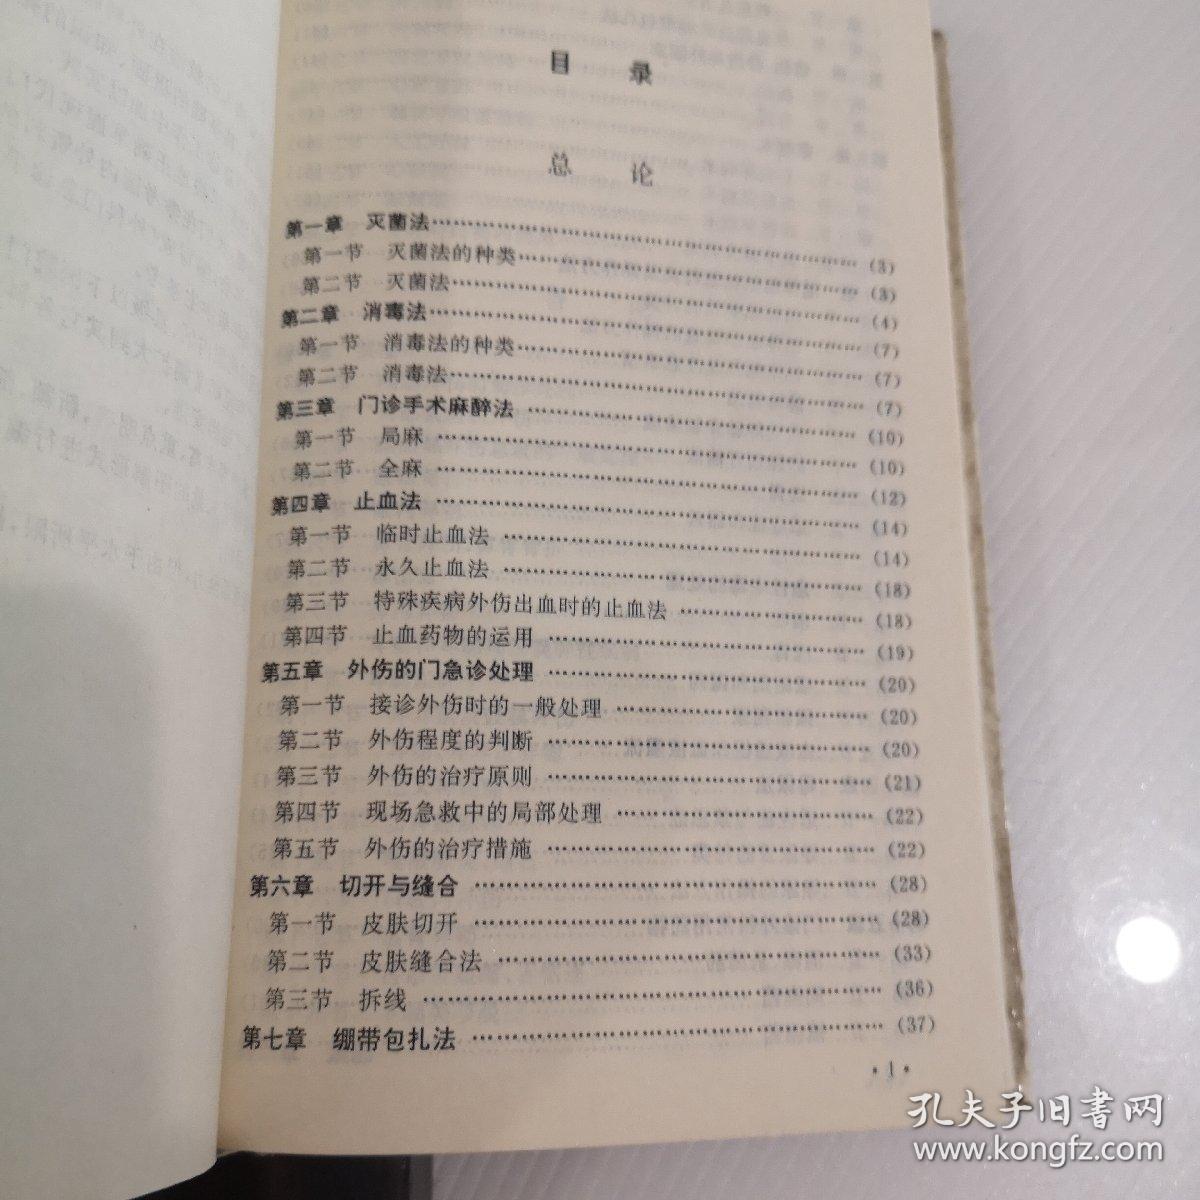 目 录
总 论
第一章 灭菌法……(3)
第一节 灭菌法的种类……(3)
第二节 灭菌法……(4)
第二章 消毒法……(7)
第一节 消毒法的种类……(7)
第二节 消毒法……(7)
第三章 门诊手术麻醉法……(10)
第一节 局麻……(10)
第二节 全麻……(12)
第四章 止血法……(14)
第一节 临时止血法……(14)
第二节 永久止血法……(18)
第三节 特殊疾病外伤出血时的止血法……(18)
第四节 止血药物的运用……(19)
第五章 外伤的门急诊处理……(20)
第一节 接诊外伤时的一般处理……(20)
第二节 外伤程度的判断……(20)
第三节 外伤的治疗原则……(21)
第四节 现场急救中的局部处理……(22)
第五节 外伤的治疗措施……(22)
第六章 切开与缝合……(28)
第一节 皮肤切开……(28)
第二节 皮肤缝合法……(33)
第三节 拆线……(36)
第七章 绷带包扎法……(37)
·1·
孔夫子旧书网
www.kongfz.com